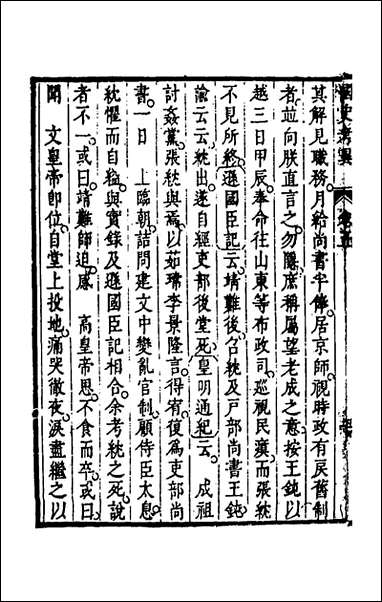 國史考異
其解見職務月給尚書半俸居京師視時政有戾舊制
者並向朕直言之勿隱庶稱屬望老成之意按王鈍以
越三日甲辰奉命往山東等布政司巡視民瘼而張紞
不見所終遜國臣記云靖難後召紞及戶部尚書王鈍
諭云云紞出遂自經吏部後堂死皇明通紀云 成祖
討姦黨張紞與焉以茹瑺李景隆言得宥復爲吏部尚
書一日 上臨朝詰問建文中變亂官制顧侍臣太息
紞懼而自縊與實錄及遜國臣記相合余考紞之死說
者不一或曰靖難師迫感 高皇帝恩不食而卒或曰
聞 文皇帝卽位自堂上投地痛哭徹夜淚盡繼之以